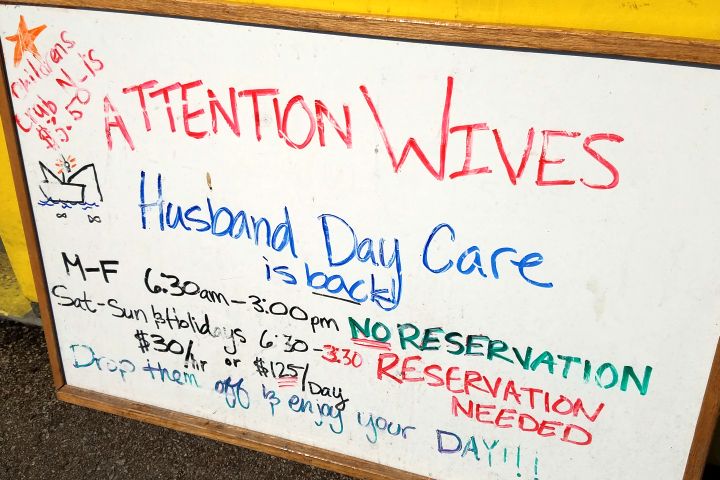 Childrens
Crab N is
$3.50
ATTENTION WIVES
Husband Day Care
is back!
M-F 6:30am-3:00pm NO RESERVATION
Sat-Sun & Holidays 6:30-3:30 RESERVATION NEEDED
$30/hr or $125/Day
Drop them off & enjoy your DAY!!!